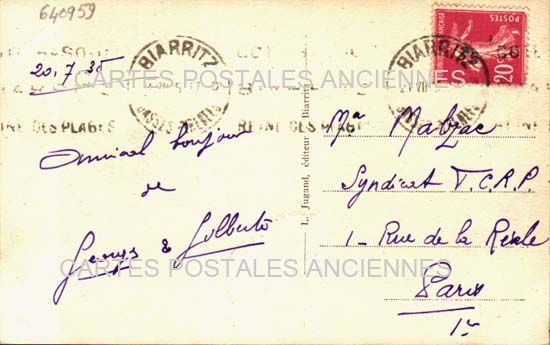 640959
20.7.35
BIARRITZ
BASSES PYRÉNÉES
REINE DES PLAGES
BIARRITZ
REINE DES PLAGES
POSTES
20
CARTES POSTALES ANCIENNES
Amical bonjour
de
&
L. Jugand, éditeur Biarritz
Malzac
Syndicat T.C.R.P.
1 - Rue de la Réale
Paris
1er
CARTES POSTALES ANCIENNES